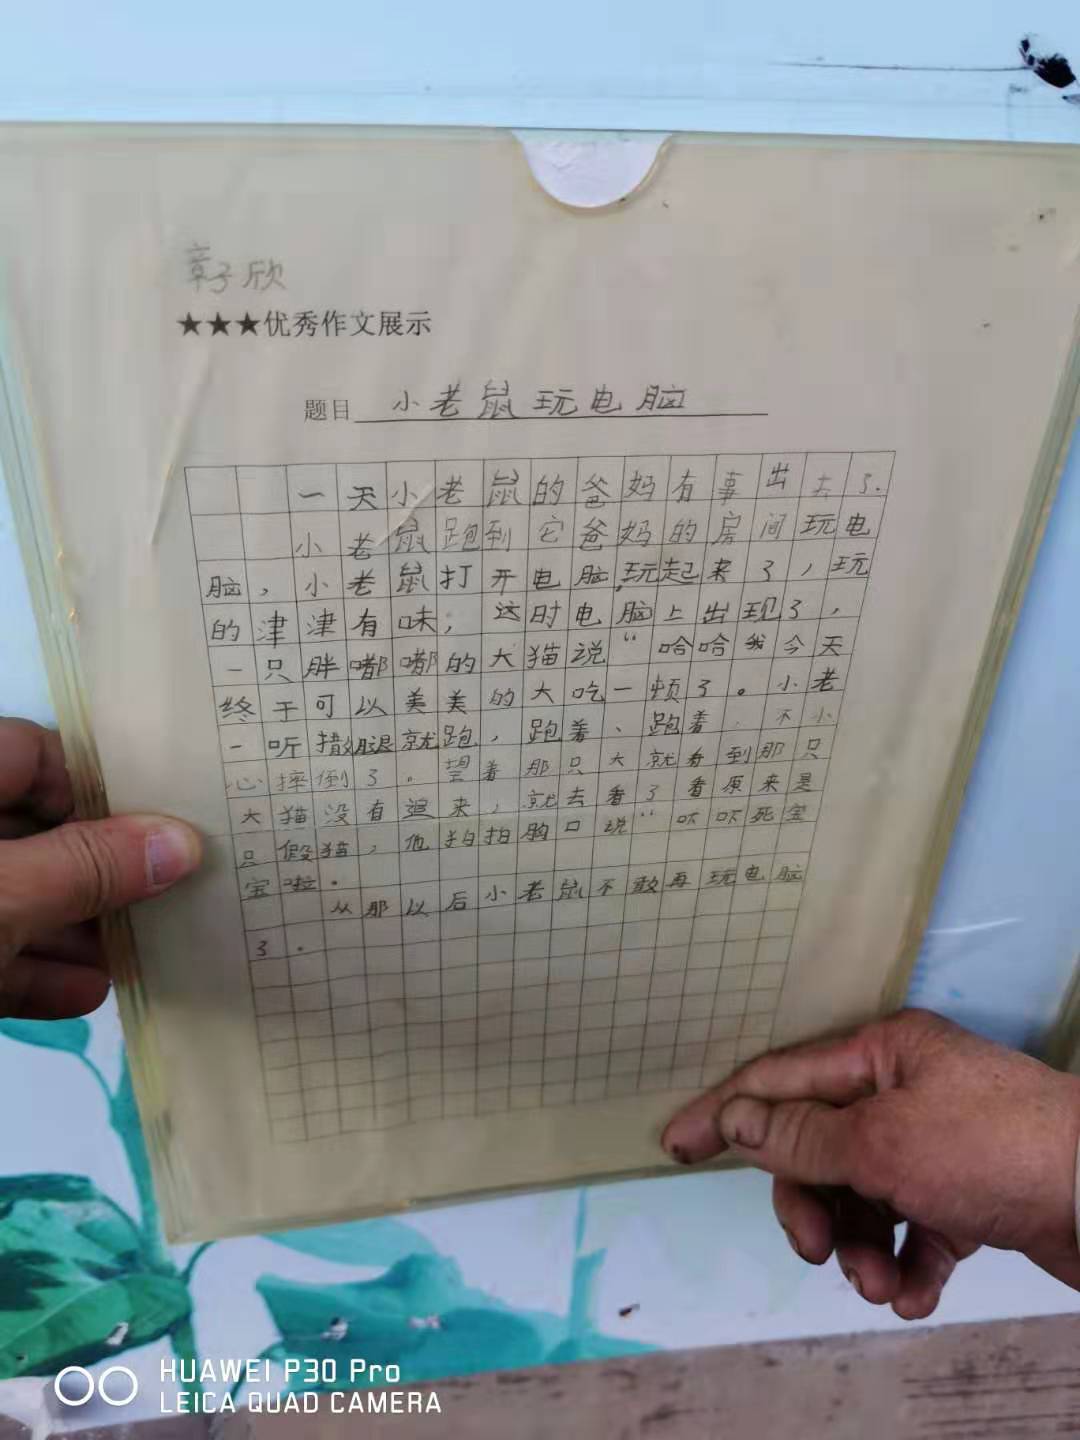 章子欣
★★★优秀作文展示
题目 小老鼠玩电脑
一天小老鼠的爸妈有事出去了.
小老鼠跑到它爸妈的房间玩电
脑，小老鼠打开电脑玩起来了，玩
的津津有味；这时电脑上出现了，
一只胖嘟嘟的大猫说“哈哈我今天
终于可以美美的大吃一顿了。小老
一听撒腿就跑，跑着、跑着，不小
心摔倒了。望着那只大就看到那只
大猫没有追来，就去看了看原来是
只假猫，他拍拍胸口说“吓吓死宝
宝啦.
从那以后小老鼠不敢再玩电脑
了.
HUAWEI P30 Pro
LEICA QUAD CAMERA